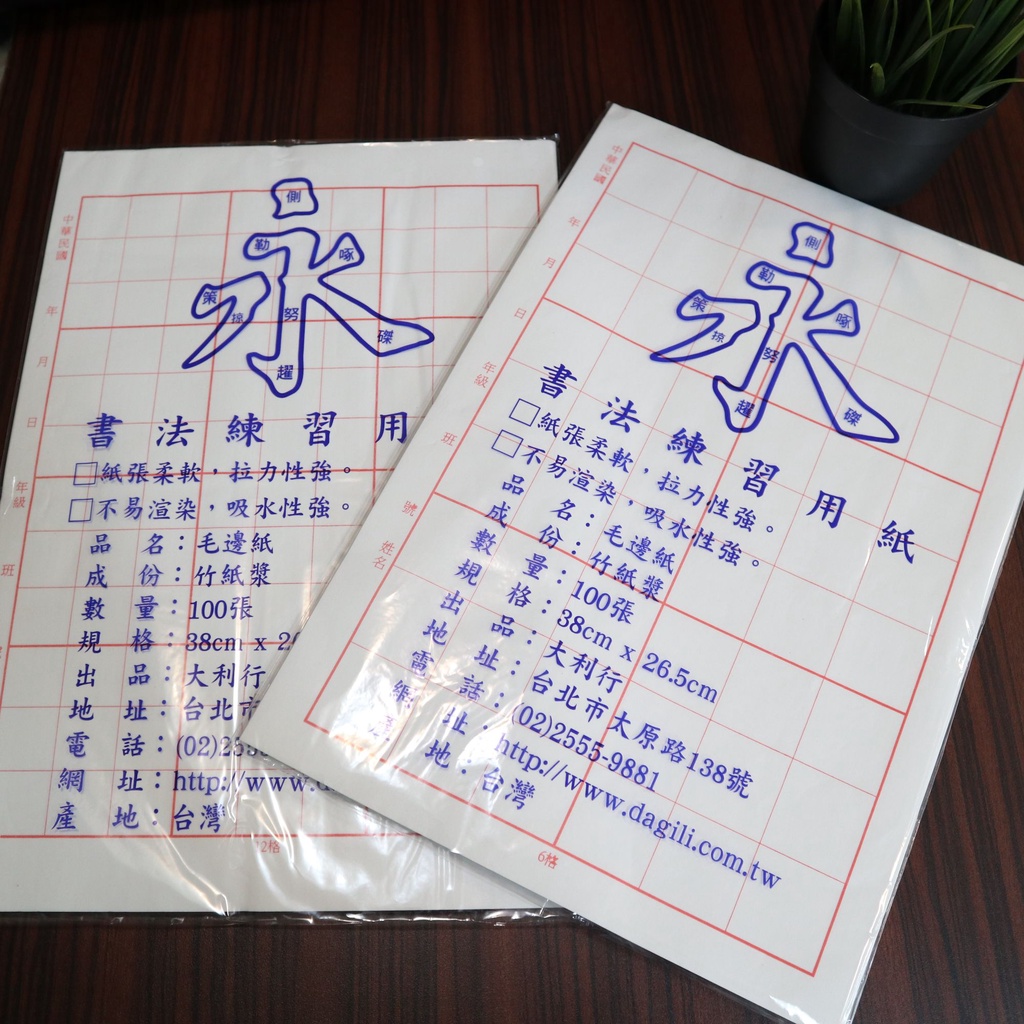 中華民國
年
月
日
年級
班
側
勒
啄
策
掠
努
磔
趯
書法練習用
□紙張柔軟，拉力性強。
□不易渲染，吸水性強。
品 名：毛邊紙
成 份：竹紙漿
數 量：100張
規 格：38cm x 2
出 品：大利行
地 址：台北市
電 話：(02)25
網 址：http://www.d
產 地：台灣
12格
中華民國
年
月
日
年級
班
號
姓名
側
勒
啄
策
掠
努
磔
趯
書法練習用紙
□紙張柔軟，拉力性強。
□不易渲染，吸水性強。
品 名：毛邊紙
成 份：竹紙漿
數 量：100張
規 格：38cm x 26.5cm
出 品：大利行
地 址：台北市太原路138號
電 話：(02)2555-9881
網 址：http://www.dagili.com.tw
產 地：台灣
6格